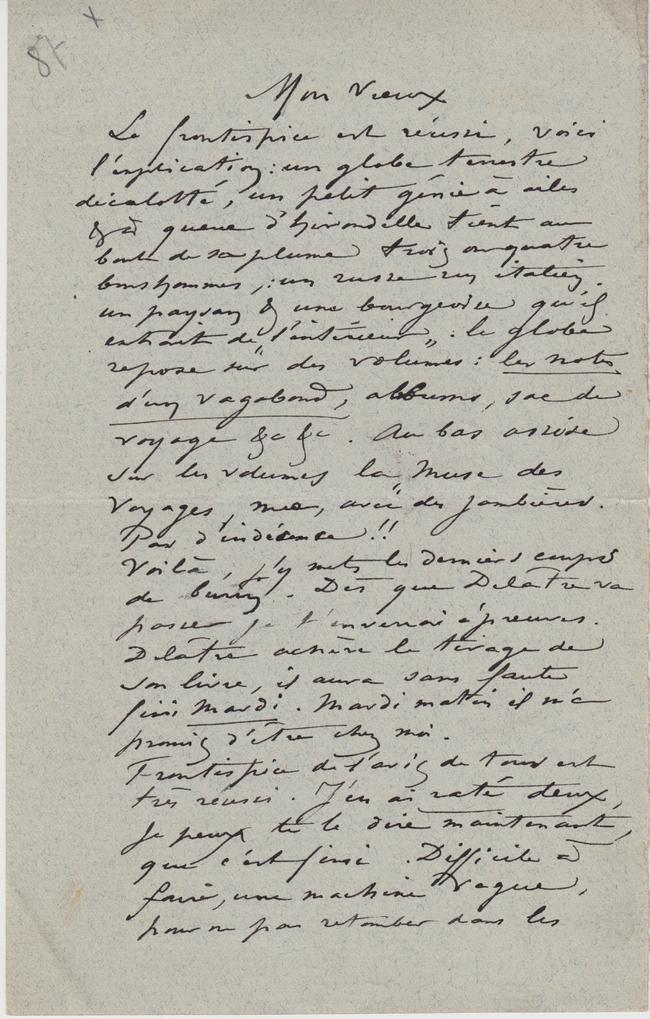 87 x
Mon vieux
Le frontispice est réussi, voici
l'explication : un globe terrestre
décalotté, un petit génie à ailes
& à queue d'hirondelle tient au
bout de sa plume trois ou quatre
bonshommes, : un russe un italien
un paysan & une bourgeoise qu'il
extrait de l'intérieur „ : le globe
repose sur des volumes : les notes
d'un vagabond, albums, sac de
voyage &c &c . Au bas assise
sur les volumes la Muse des
Voyages, nue, avec des jambières.
Pas d'indécence !!
Voilà, j'y mets les derniers coups
de burin. Dès que Delâtre va
passer je t'enverrai épreuves.
Delâtre achève le tirage de
son livre, il aura sans faute
fini Mardi. Mardi matin il m'a
promis d'être chez moi.
Frontispice de l'avis de tous est
très réussi. J'en ai raté deux,
je peux te le dire maintenant,
que c'est fini . Difficile à
faire, une machine vague,
pour ne pas retomber dans les